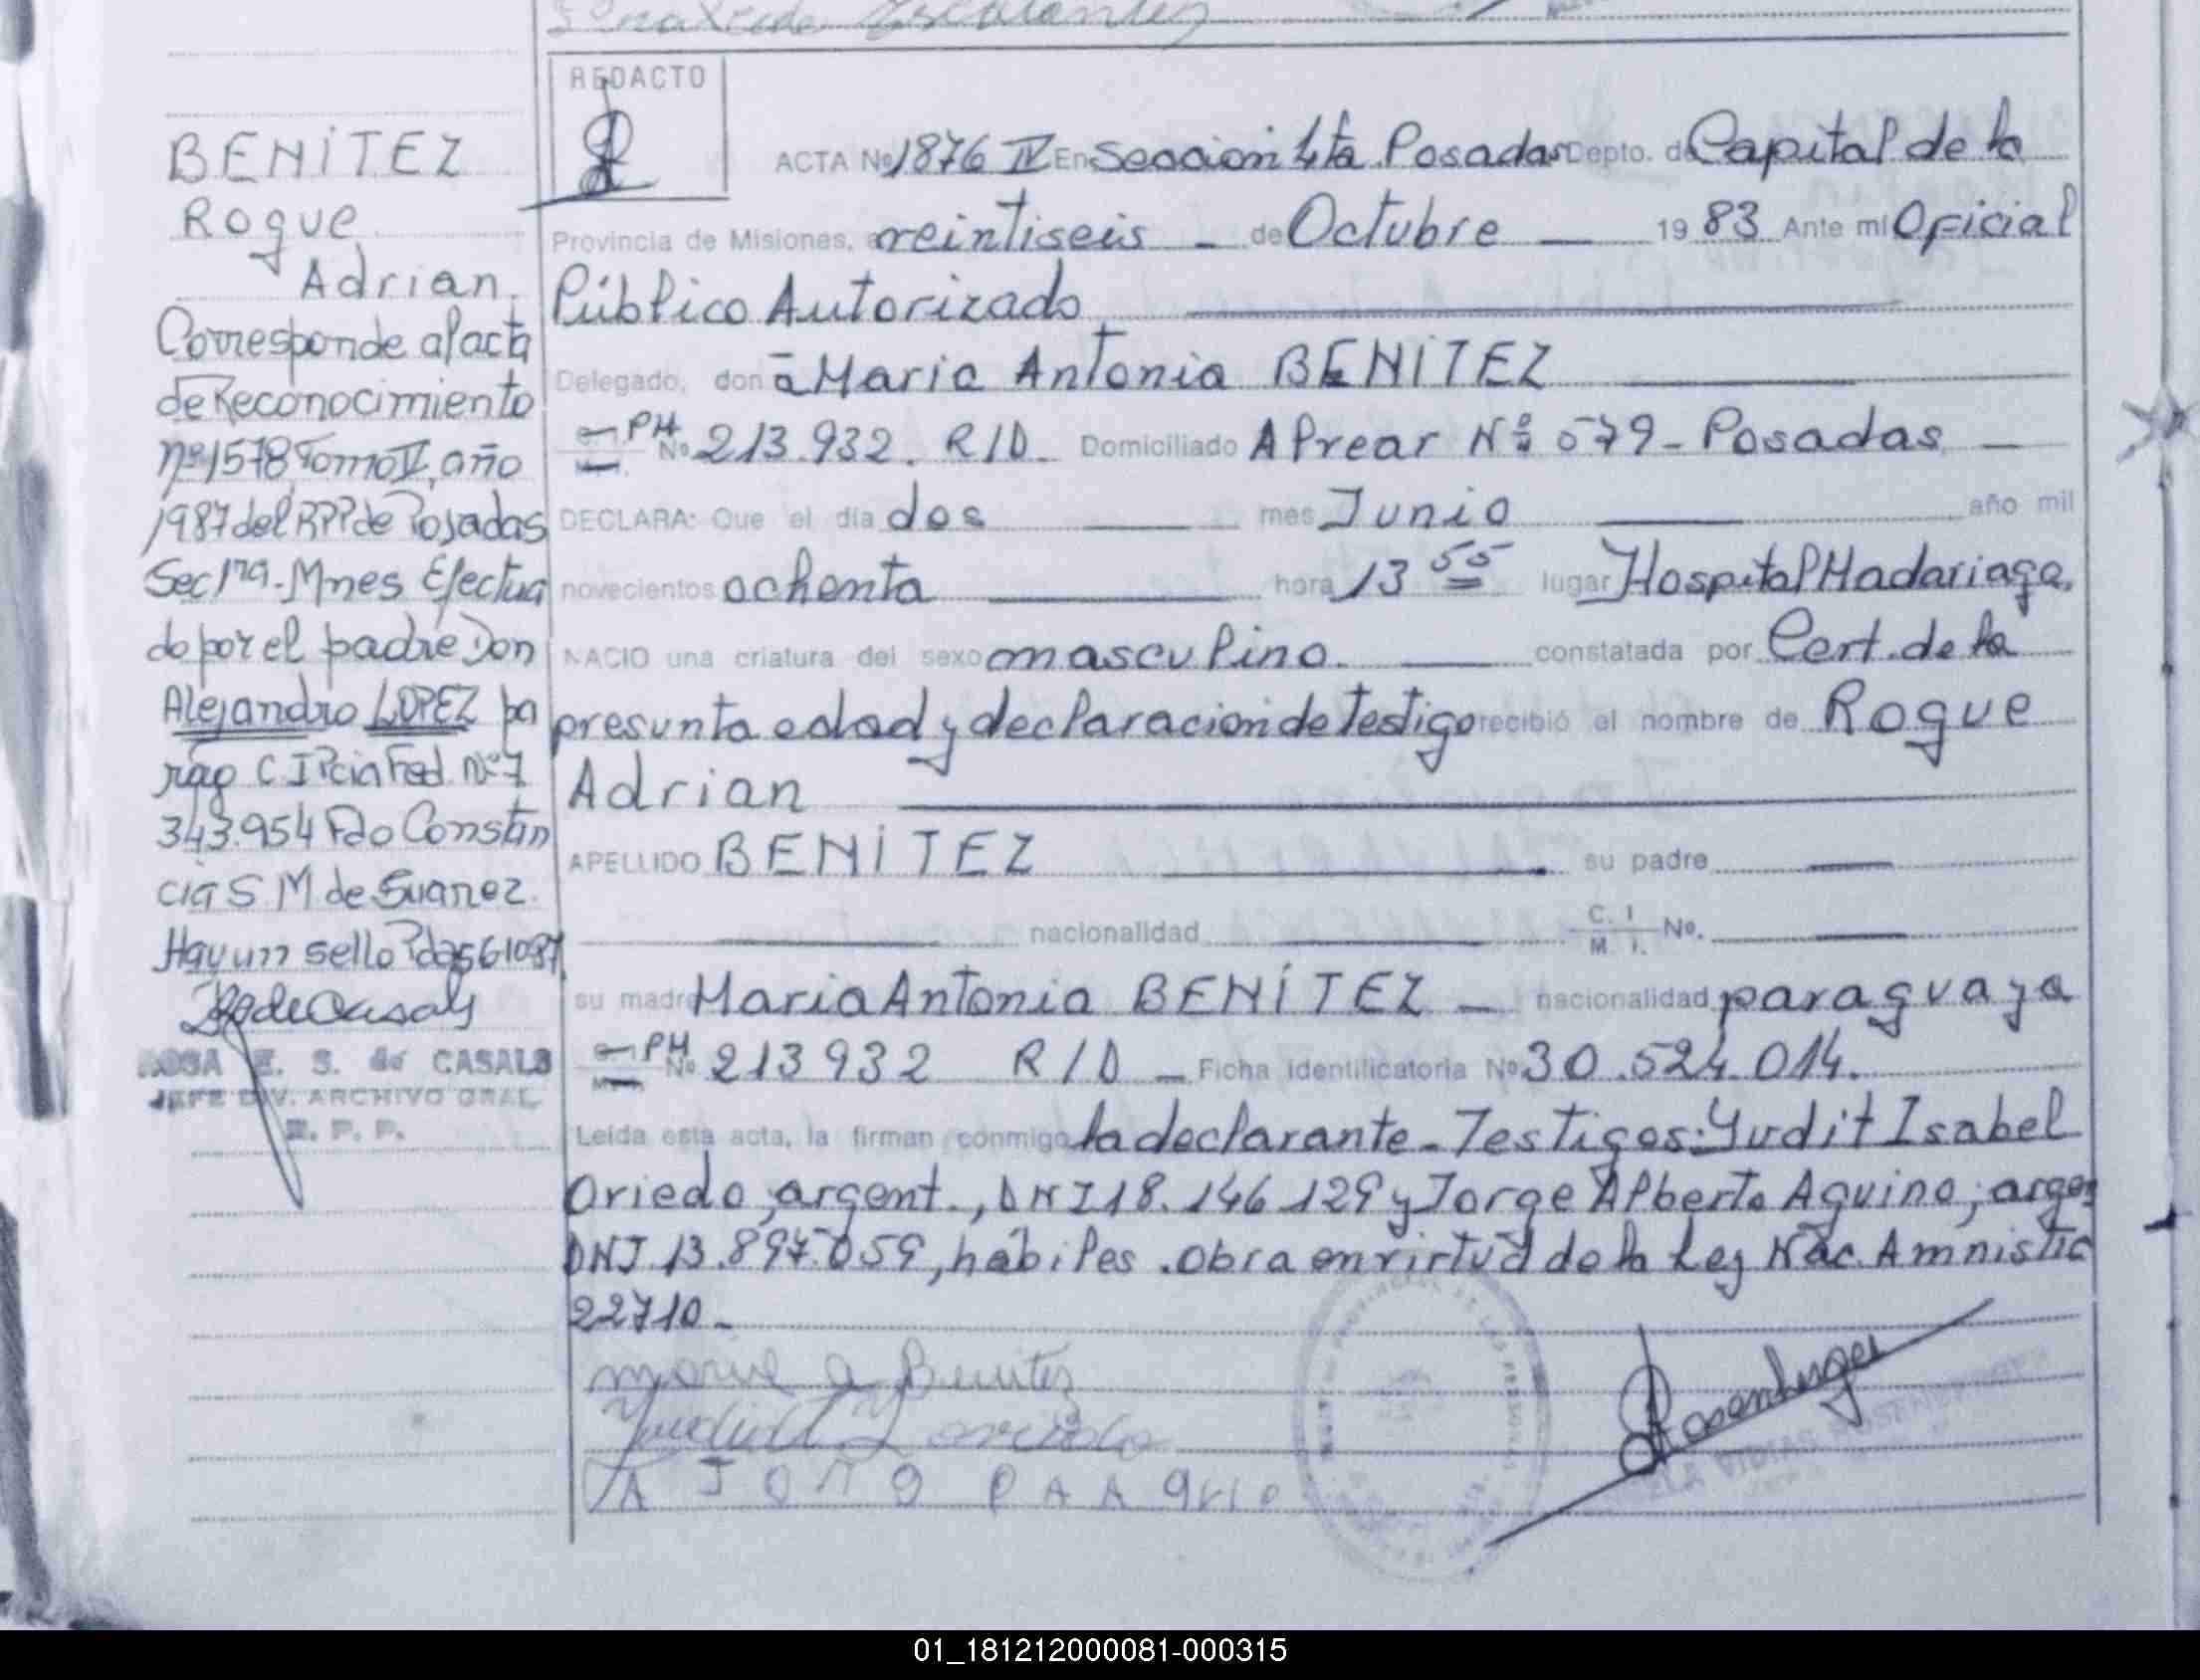 BENÍTEZ
Roque
Adrian.
Corresponde al acta
de Reconocimiento
nº 1578, Tomo V, año
1987 del RPP de Posadas
Sec 1ra - Mnes Efectua
do por el padre Don
Alejandro LOPEZ pa
rag C I Pcia Fed Nº 7
343.954 Fdo Constan
cia S M de Suarez.
Hay un sello Pdas 61087
ROSA E. S. de CASALS
JEFE DIV. ARCHIVO GRAL
R. P. P.
REDACTO
ACTA Nº 1876 IV En Seccion 4ta Posadas Depto. de Capital de la
Provincia de Misiones, a veintiseis - de Octubre — 19 83 Ante mi Oficial
Público Autorizado
Delegado, don ā Maria Antonia BENÍTEZ
PH Nº 213.932. R/D. Domiciliado Alvear Nº 579 - Posadas —
DECLARA: Que el día dos — mes Junio — año mil
novecientos ochenta — hora 13 55 lugar Hospital Madariaga.
NACIO una criatura del sexo masculino. — constatada por Cert. de la
presunta edad y declaracion de testigo recibió el nombre de Roque
Adrian
APELLIDO BENÍTEZ — su padre —
— nacionalidad — C. I. M. I. No. —
su madre Maria Antonia BENÍTEZ — nacionalidad paraguaya
PH Nº 213932 R/D — Ficha identificatoria Nº 30.524.014.
Leída esta acta, la firman conmigo la declarante - Testigos: Yudit Isabel
Oviedo, argent., DNI 18.146.129 y Jorge Alberto Aquino, argen
DNI 13.897.059, hábiles. Obra en virtud de la Ley Nac. Amnistia
22710 -
Maria a Benitez
Rosenberger
01_181212000081-000315